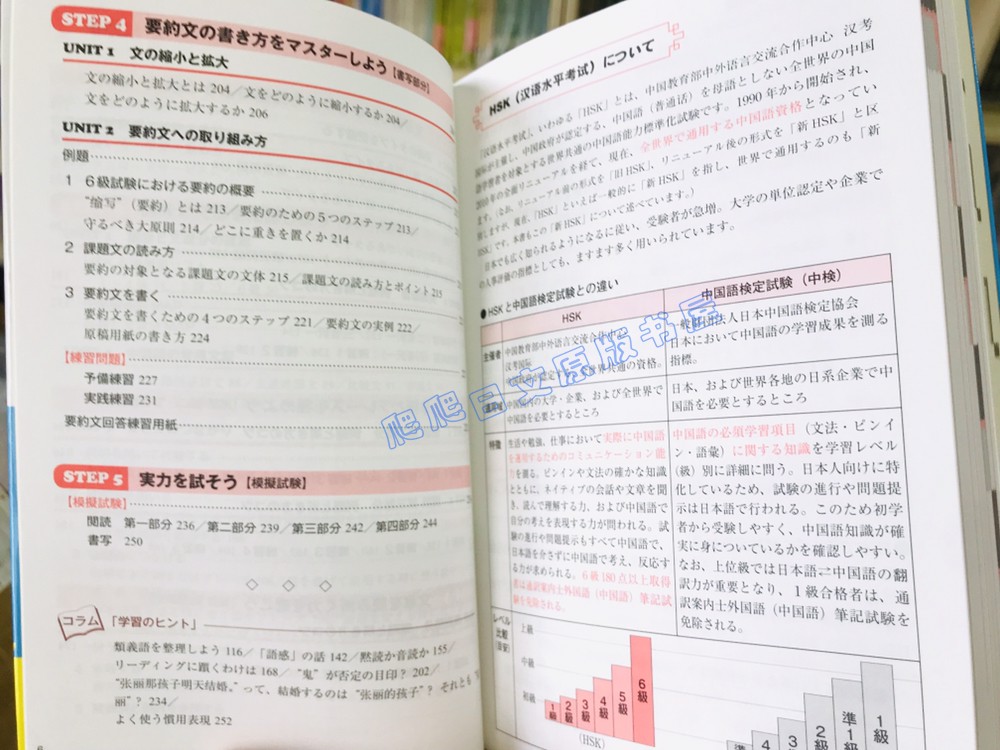 STEP 4 要約文の書き方をマスターしよう【書写部分】
UNIT 1 文の縮小と拡大
文の縮小と拡大とは 204／文をどのように縮小するか 204／
文をどのように拡大するか 206
UNIT 2 要約文への取り組み方
例題
1 6級試験における要約の概要
“缩写”（要約）とは 213／要約のための5つのステップ 213／
守るべき大原則 214／どこに重きを置くか 214
2 課題文の読み方
要約の対象となる課題文の文体 215／課題文の読み方とポイント 215
3 要約文を書く
要約文を書くための4つのステップ 221／要約文の実例 222／
原稿用紙の書き方 224
【練習問題】
予備練習 227
実践練習 231
要約文回答練習用紙
STEP 5 実力を試そう【模擬試験】
【模擬試験】
閲読 第一部分 236／第二部分 239／第三部分 242／第四部分 244
書写 250
◇ ◇ ◇
コラム 「学習のヒント」
類義語を整理しよう 116／「語感」の話 142／黙読か音読か 155／
リーディングに躓くわけは 168／“鬼”が否定の目印？ 202／
“张丽那孩子明天结婚。”って、結婚するのは“张丽的孩子”？それとも
丽”？ 234／
よく使う慣用表現 252
6
HSK（汉语水平考试）について
「汉语水平考试」、いわゆる「HSK」とは、中国教育部中外语言交流合作中心 汉考
国际が主催し、中国政府が認定する、中国語（普通话）を母語としない全世界の中国
語学習者を対象とする世界共通の中国語能力標準化試験です。1990年から開始され、
2010年の全面リニューアルを経て、現在、全世界で通用する中国語資格となってい
ます。（なお、リニューアル前の形式を「旧HSK」、リニューアル後の形式を「新HSK」と区
別しますが、現在、「HSK」といえば一般的に「新HSK」を指し、世界で通用するのも「新
HSK」です。本書もこの「新HSK」について述べています。）
日本でも広く知られるようになるに従い、受験者が急増。大学の単位認定や企業で
の人事評価の指標としても、ますます多く用いられています。
●HSKと中国語検定試験との違い
HSK
中国語検定試験（中検）
主催者
中国教育部中外语言交流合作中心
汉考国际
世界共通の資格。
一般財団法人日本中国語検定協会
日本において中国語の学習成果を測る
指標。
中国国内の大学・企業、および全世界で
中国語を必要とするところ
日本、および世界各地の日系企業で中
国語を必要とするところ
特徴
生活や勉強、仕事において実際に中国語
を運用するためのコミュニケーション能
力を測る。ピンインや文法の確かな知識
とともに、ネイティブの会話や文章を聞
き、読んで理解する力、および中国語で
自分の考えを表現する力が問われる。試
験の進行や問題提示もすべて中国語で、
日本語を介さずに中国語で考え、反応す
る力が求められる。6級180点以上取得
者は通訳案内士外国語（中国語）筆記試
験を免除される。
中国語の必須学習項目（文法・ピンイ
ン・語彙）に関する知識を学習レベル
（級）別に詳細に問う。日本人向けに特
化しているため、試験の進行や問題提
示は日本語で行われる。このため初学
者から受験しやすく、中国語知識が確
実に身についているかを確認しやすい。
なお、上位級では日本語⇄中国語の翻
訳力が重要となり、1級合格者は、通
訳案内士外国語（中国語）筆記試験を
免除される。
レベル
比較
（目安）
上級
中級
初級
1級
2級
3級
4級
5級
6級
（HSK）
4
3
2級
準1級
1級
爬爬日文原版书屋